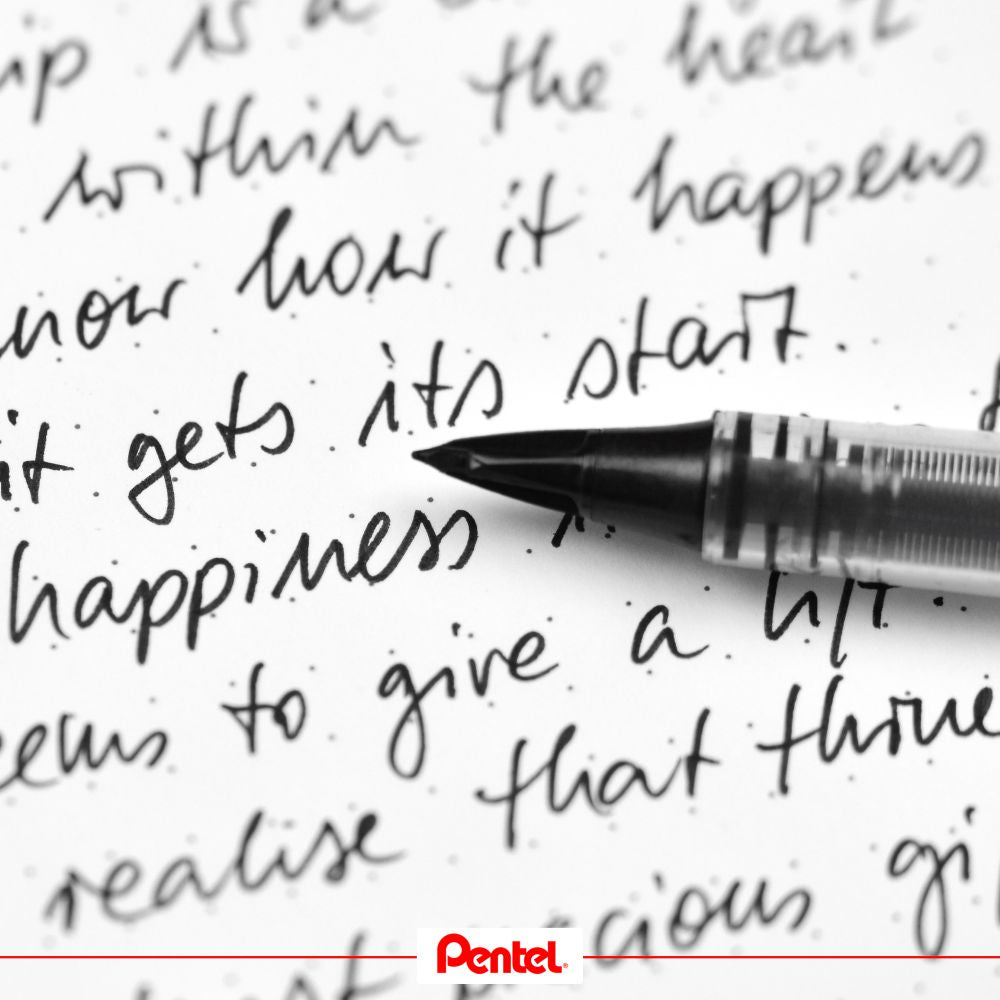 ip is a
within the heart
now how it happens
it gets its start.
happiness
eems to give a
realise that
cious gi
Pentel